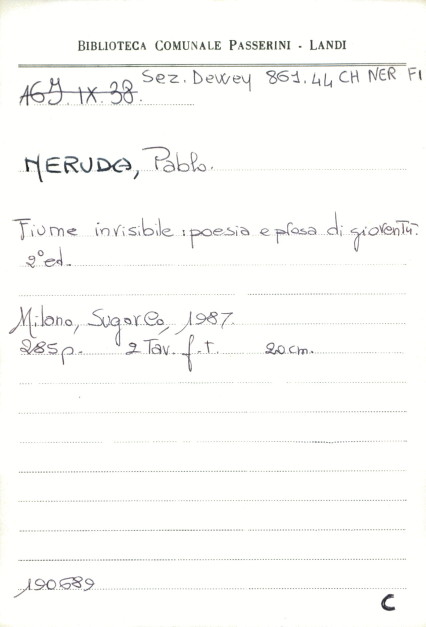 BIBLIOTECA COMUNALE PASSERINI - LANDI
Sez. Dewey 861.44 CH NER FI
A6Y.IX.38.
NERUDA, Pablo.
Fiume invisibile : poesia e prosa di gioventù.
2°ed.
Milano, SugarCo, 1987.
285p. 2 Tav. f.t. 20cm.
190689
C